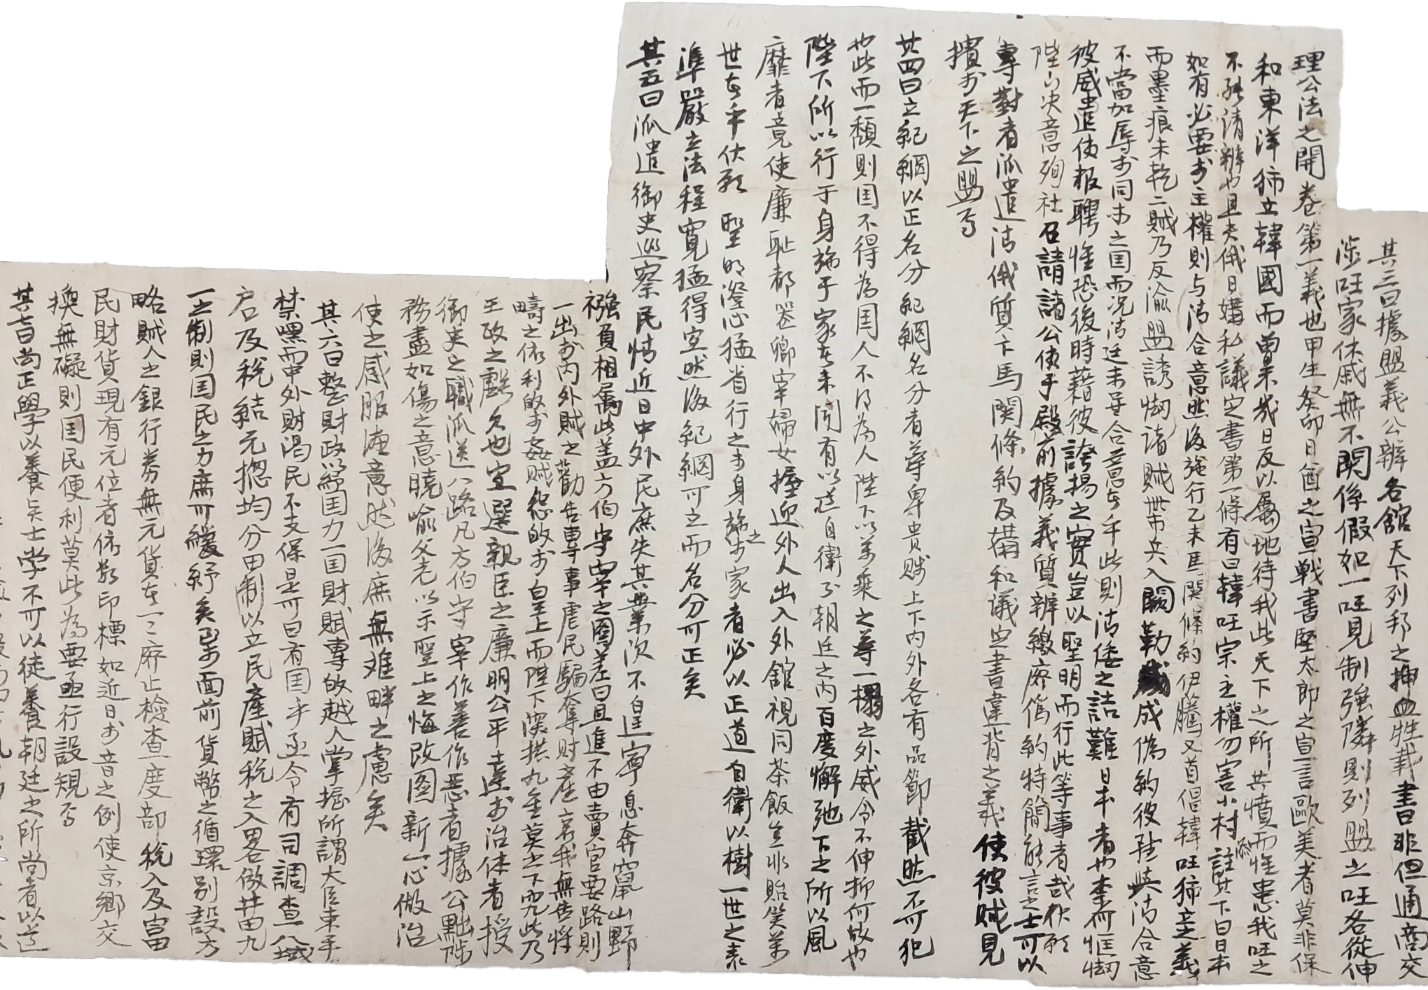 其三曰據盟義公辨各館天下列邦之揷血牲載書非但通商交
涉旺家休戚無不關係假如一旺見制強隣則列盟之旺各從伸
理公法之開卷第一義也甲午癸卯日酋之宣戰書堅太郎之宣言歐美者莫非保
和東洋獨立韓國而曾未幾日反以屬地待我此天下之所共憤而惟患我旺之
不能淸辨也且夫俄日媾和議定書第二條有曰韓旺宗主權勿害小村註其下曰日本
如有必要於主權則与淸合意然後施行乙未馬関條約伊騰又首倡韓旺獨立義
而墨痕未乾二賊乃反渝盟誘刼諸賊世帶兵入闕勒成僞約彼雖與淸合意
不當加辱於同等之国而況淸廷未甞合意者乎此則淸倭之詰難日本者也李何恇㥘
彼威遣使報聘惟恐後時藉彼誇揚之實豈以聖明而行此等事者哉伏願
陛下決意殉社召請諸公使于殿前據義質辨繳廖僞約特簡能言之士可以
專對者派遣淸俄質下馬関條約及媾和議㝎書違背之義使彼賊見
擯於天下之盟焉
其四曰立紀綱以正名分紀綱名分者尊卑貴賤上下內外各有品節截然不可犯
也此而一頹則国不得為国人不得為人陛下以萬乘之尊一榻之外威令不伸抑何故也
陛下所以行于身施于家者未聞有以道自衛而朝廷之內百度懈弛下之所以風
靡者竟使廉恥都喪卿宰婦女擁迎外人出入外館視同茶飯豈非貽笑萬
世者乎伏願 聖明澄心猛省行之於身施之於家者必以正道自衛以樹一世之表
準嚴立法程寬猛得宜然後紀綱可立而名分可正矣
其五曰派遣御史巡察民情近日中外民庶失其業次不遑寧息奔竄山野
襁負相屬此盖方伯守宰之圖差曰且進不由賣官要路則
一出於內外賊之勸告專事虐民騙奪財產哀我無告將
疇之依利敀於姦賊怨敀於皇上而陛下深拱九重莫之下究此乃
王政之斁久也宜選親臣之廉明公平達於治体者授
御史之職派送八路凡方伯守宰作善作惡者據公黜陟
務盡如傷之意曉喩父老以示聖上之悔改圖新一心做治
使之感服德意然後庶無难畔之慮矣
其六曰整財政以紓国力一国財賦專敀越人掌握所謂大臣束手
禁嘿而中外財渴民不支保是可曰有国乎亟令有司調查八域
戶及稅結元摠均分田制以立民產賦稅之入畧倣井田九
一之制則国民之力庶可緩紓矣至於面前貨幣之循環別設方
略賊人之銀行券無元貨者一二麻止檢查度部稅入及富
民財貨現有元位者依數印標如近日於音之例使京鄕交
換無礙則国民便利莫此為要亟行設規焉
其七曰尚正學以養兵士学不可以徒養朝廷之所尚者以道